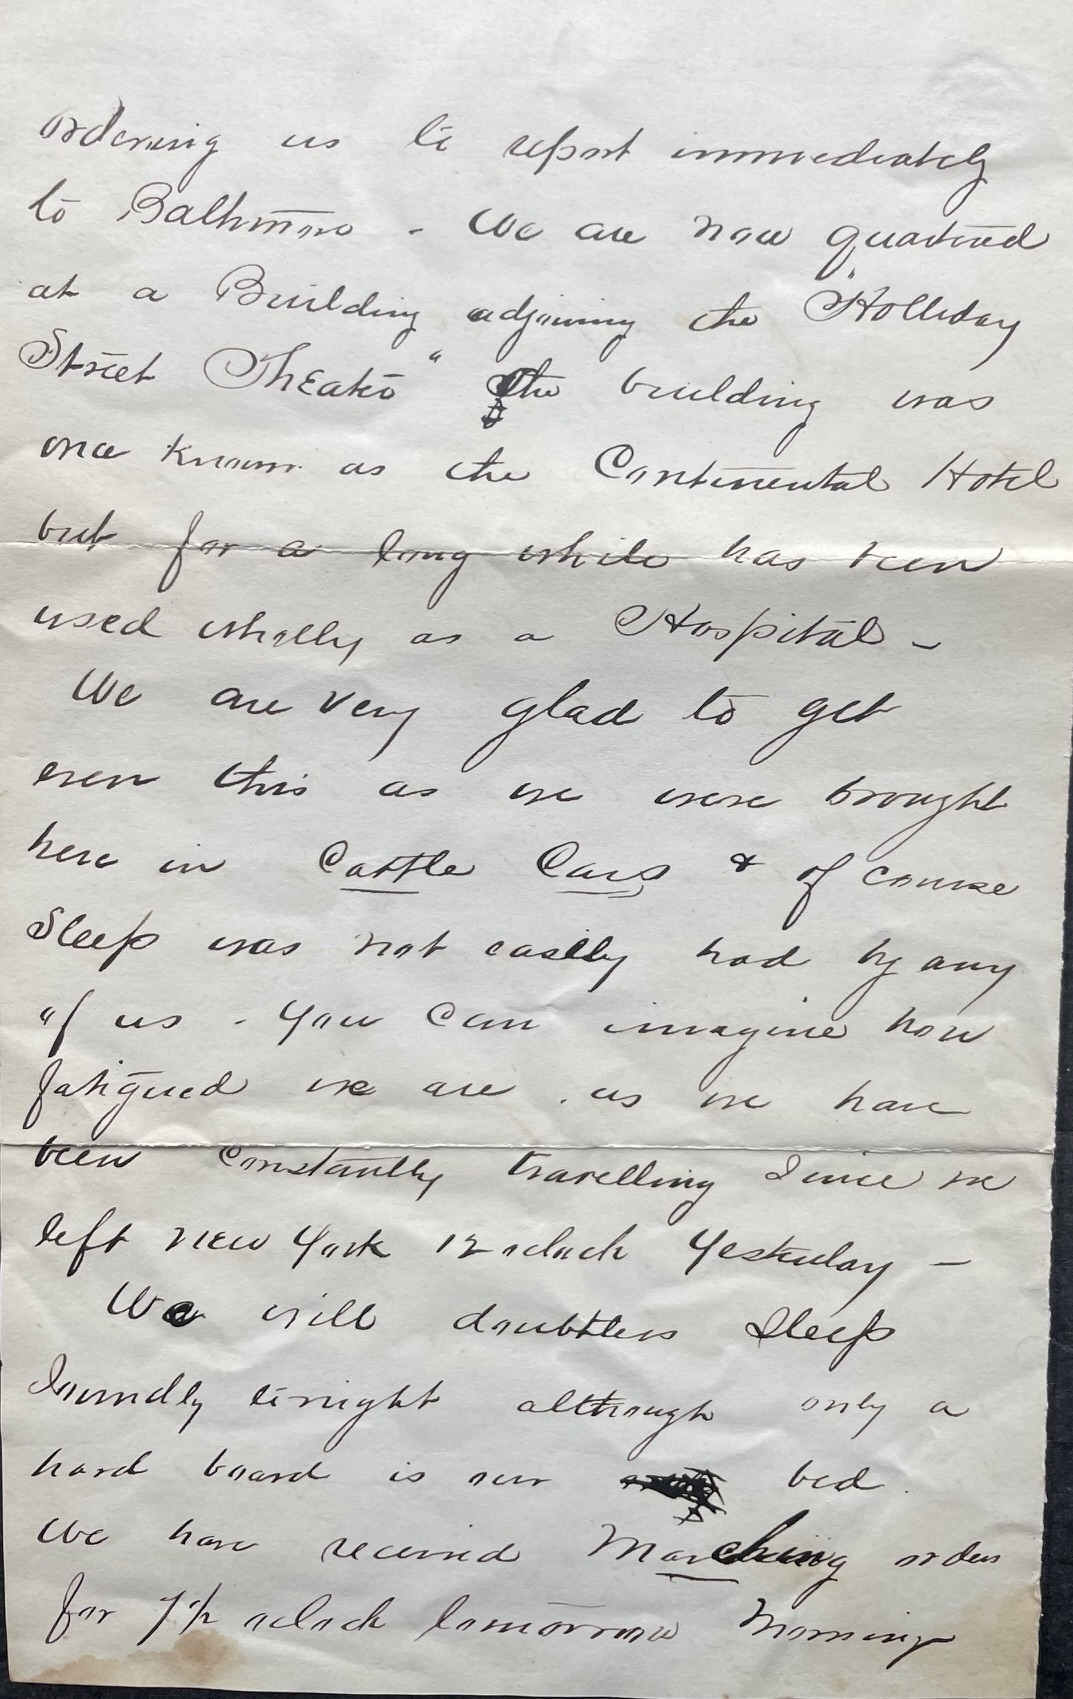 ordering us to report immediately
to Baltimore - We are now quartered
at a Building adjoining the "Holliday
Street Theatre" the building was
once known as the Continental Hotel
but for a long while has been
used wholly as a Hospital -
We are very glad to get
even this as we were brought
here in Cattle Cars & of course
Sleep was not easily had by any
of us - You can imagine how
fatigued we are . as we have
been Constantly travelling Since we
left New York 12 oclock Yesterday -
We will doubtless Sleep
Soundly tonight although only a
hard board is our bed .
We have received Marching orders
for 7½ oclock tomorrow Morning